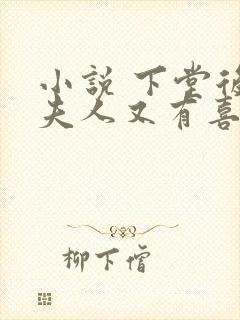 小說 下堂後
夫人又有喜
柳下惛